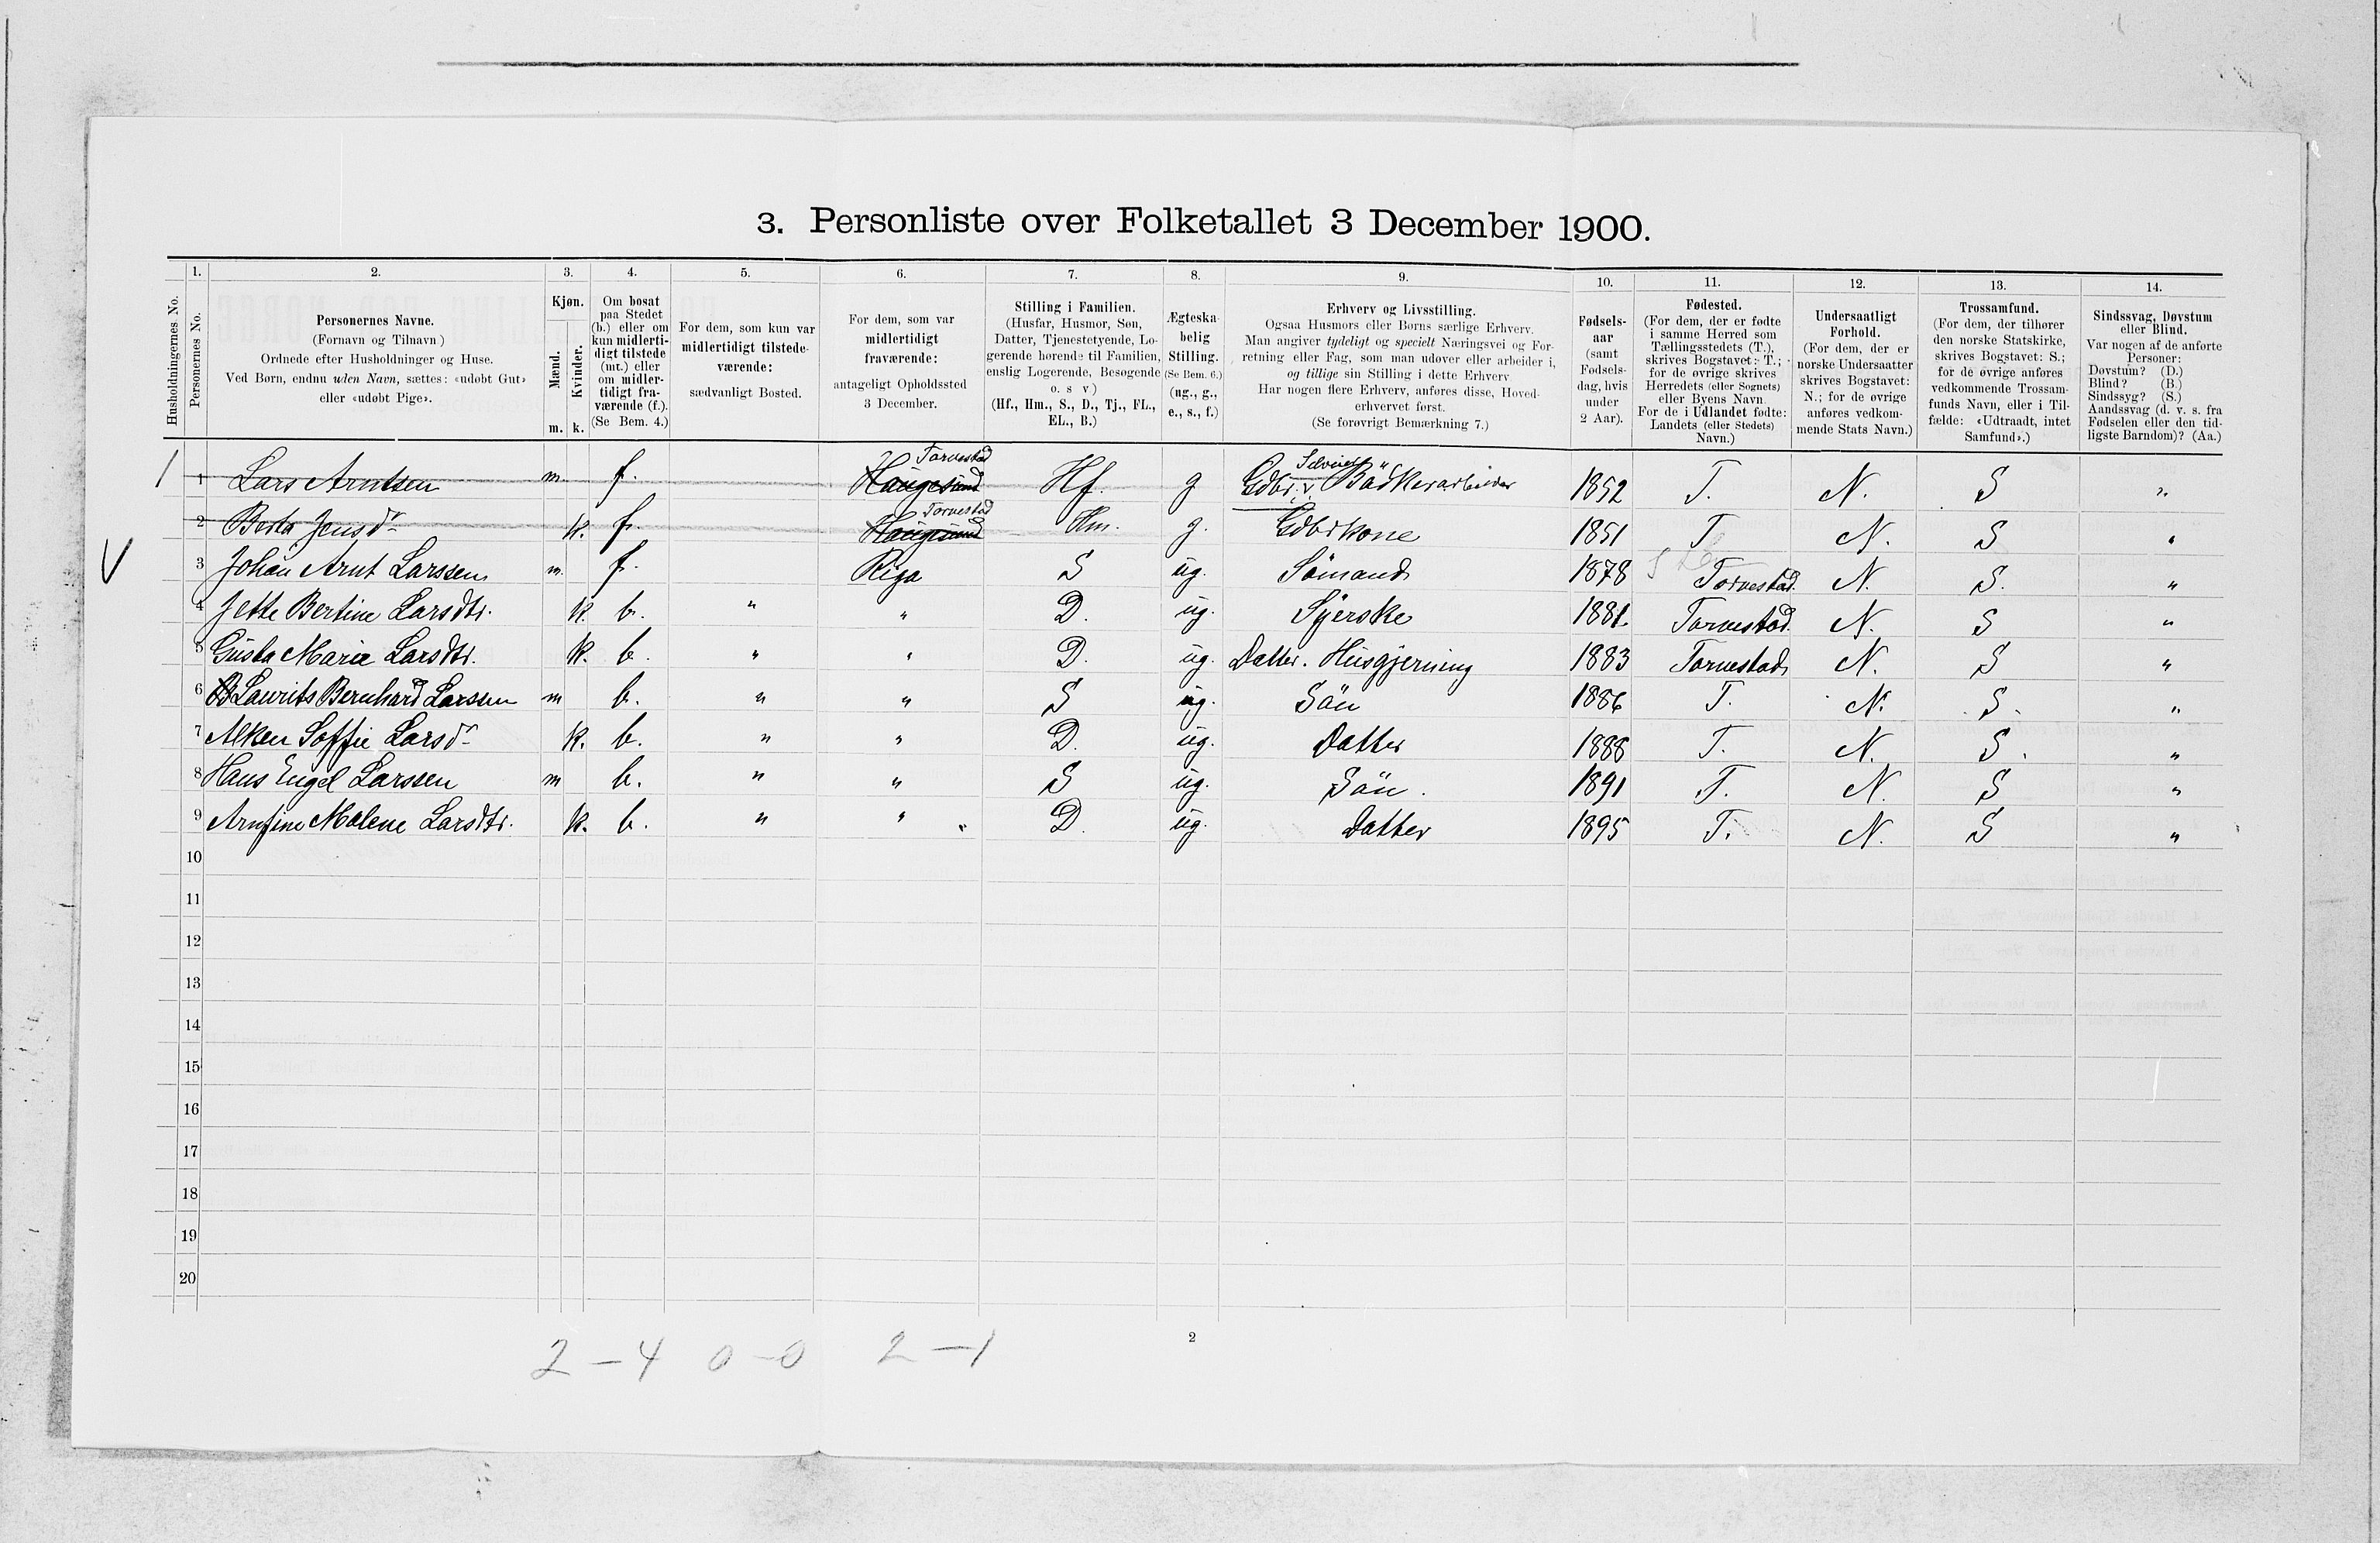 3. Personliste over Folketallet 3 December 1900.
1. 2. 3. 4. 5. 6. 7. 8. 9. 10. 11. 12. 13. 14.
Husholdningernes No.
Personernes No.
Personernes Navne.
(Fornavn og Tilnavn)
Ordnede efter Husholdninger og Huse.
Ved Børn, endnu uden Navn, sættes: «udøbt Gut»
eller «udøbt Pige».
Kjøn.
Mænd.
Kvinder.
m. k.
Om bosat
paa Stedet
(b.) eller om
kun midlerti-
digt tilstede
(mt.) eller
om midler-
tidigt fra-
værende (f.).
(Se Bem. 4.)
For dem, som kun var
midlertidigt tilstede-
værende:
sædvanligt Bosted.
For dem, som var
midlertidigt
fraværende:
antageligt Opholdssted
3 December.
Stilling i Familien.
(Husfar, Husmor, Søn,
Datter, Tjenestetyende, Lo-
gerende hørende til Familien,
enslig Logerende, Besøgende
o. s v.)
(Hf., Hm., S., D., Tj., FL.,
EL., B.)
Ægteska-
belig
Stilling.
(Se Bem. 6.)
(ug., g.,
e., s., f.)
Erhverv og Livsstilling.
Ogsaa Husmors eller Børns særlige Erhverv.
Man angiver tydeligt og specielt Næringsvei og For-
retning eller Fag, som man udøver eller arbeider i,
og tillige sin Stilling i dette Erhverv
Har nogen flere Erhverv, anføres disse, Hoved-
erhvervet først.
(Se forøvrigt Bemærkning 7.)
Fødsels-
aar
(samt
Fødsels-
dag, hvis
under
2 Aar).
Fødested.
(For dem, der er fødte
i samme Herred som
Tællingsstedets (T.),
skrives Bogstavet: T.;
for de øvrige skrives
Herredets (eller Sognets)
eller Byens Navn.
For de i Udlandet fødte:
Landets (eller Stedets)
Navn.)
Undersaatligt
Forhold.
(For dem, der er
norske Undersaatter
skrives Bogstavet:
N.; for de øvrige
anføres vedkom-
mende Stats Navn.)
Trossamfund.
(For dem, der tilhører
den norske Statskirke,
skrives Bogstavet: S.;
for de øvrige anføres
vedkommende Trossam-
funds Navn, eller i Til-
fælde: «Udtraadt, intet
Samfund».)
Sindssvag, Døvstum
eller Blind.
Var nogen af de anførte
Personer:
Døvstum? (D.)
Blind? (B.)
Sindssyg? (S.)
Aandssvag (d. v. s. fra
Fødselen eller den tid-
ligste Barndom)? (Aa.)
Torvestad
1 1 Lars Arntsen m. f. Haugesund Hf. g Gdbr. v. Bödkerarbeider 1852 T. N. S "
Torvestad
2 Berta Jensdr k. f. Haugesund Hm. g. Gdbrkone 1851 T N. S "
V 3 Johan Arnt Larssen m. f. Riga S ug. Sömand 1878 Torvestad. N. S. "
4 Jette Bertine Larsdtr. k. b. " " D. ug. Syerske 1881. Torvestad. N. S "
5 Gusta Marie Larsdtr. k. b. " " D. ug. Datter. Husgjerning 1883 Torvestad N. S "
6 Laurits Bernhard Larssen m b. " " S ug. Sön 1886 T. N. S. "
7 Alken Soffie Larsdr k. b. " " D. ug. Datter 1888 T. N. S. "
8 Hans Engel Larssen m b. " " S ug. Sön. 1891 T. N. S "
9 Arnfine Malene Larsdtr. k. b. " " D. ug. Datter 1895 T. N. S "
10
11
12
13
14
15
16
17
18
19
20
2
2 - 4 0 - 0 2 - 1